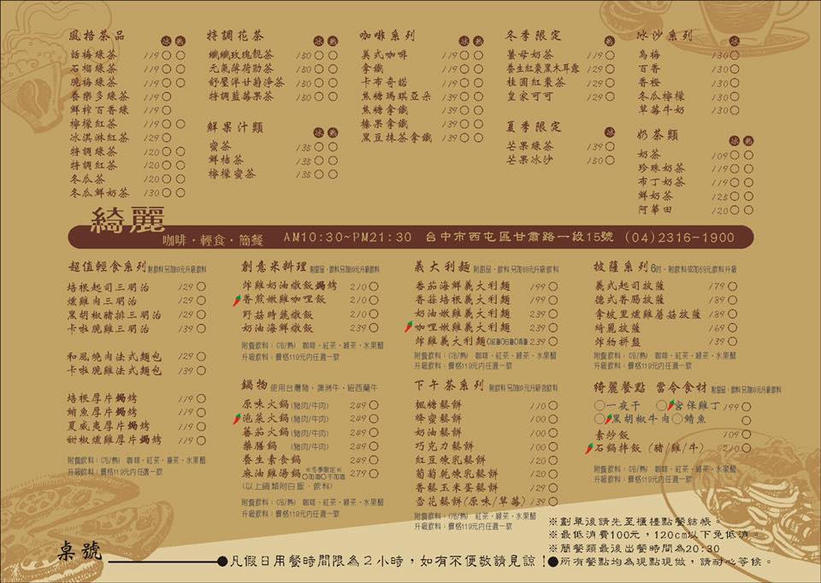 風格茶品 冰 熱
話梅綠茶 119
石榴綠茶 119
脆梅綠茶 119
養樂多綠茶 119
鮮榨百香綠 119
檸檬紅茶 119
冰淇淋紅茶 129
特調綠茶 120
特調紅茶 120
冬瓜茶 120
冬瓜鮮奶茶 130
特調花茶 冰 熱
纖纖玫瑰靚茶 180
元氣薄荷勁茶 180
舒壓洋甘菊淨茶 180
特調藍莓果茶 180
鮮果汁類 冰 熱
蜜茶 138
鮮桔茶 138
檸檬蜜茶 138
咖啡系列 冰 熱
美式咖啡 119
拿鐵 119
卡布奇諾 119
焦糖瑪琪亞朵 139
焦糖拿鐵 139
榛果拿鐵 139
黑豆抹茶拿鐵 139
冬季限定 熱
薑母奶茶 119
養生紅棗黑木耳露 129
桂圓紅棗茶 129
皇家可可 129
夏季限定 冰
芒果綠茶 139
芒果冰沙 180
冰沙系列 冰
烏梅 130
百香 130
香橙 130
冬瓜檸檬 130
草莓牛奶 130
奶茶類 冰 熱
奶茶 109
珍珠奶茶 119
布丁奶茶 119
鮮奶茶 128
阿華田 120
綺麗
咖啡·輕食·簡餐 AM10:30~PM21:30 台中市西屯區甘肅路一段15號 (04)2316-1900
超值輕食系列
培根起司三明治 129
燻雞肉三明治 129
黑胡椒豬排三明治 129
卡啦脆雞三明治 139
和風燒肉法式麵包 129
卡啦脆雞法式麵包 139
培根厚片焗烤 119
鮪魚厚片焗烤 119
夏威夷厚片焗烤 119
甜椒燻雞厚片焗烤 119
附餐飲料:(冰/熱) 咖啡、紅茶、綠茶、水果醋
升級飲料:價格119元內任選一款
創意米料理
炸雞奶油燉飯焗烤 210
香煎嫩雞咖哩飯 210
野菇時蔬燉飯 210
奶油海鮮燉飯 239
附餐飲料:(冰/熱) 咖啡、紅茶、綠茶、水果醋
升級飲料:價格119元內任選一款
鍋物 使用台灣豬、澳洲牛、紐西蘭牛
原味火鍋(豬肉/牛肉) 249
泡菜火鍋(豬肉/牛肉) 249
蕃茄火鍋(豬肉/牛肉) 249
藥膳鍋 (豬肉/牛肉) 249
養生素食鍋 249
麻油雞湯鍋 ※冬季限定※ 加酒 不加酒 279
(以上鍋類附白飯、飲料)
附餐飲料:(冰/熱) 咖啡、紅茶、綠茶、水果醋
升級飲料:價格119元內任選一款
義大利麵
番茄海鮮義大利麵 199
香蒜培根義大利麵 199
奶油嫩雞義大利麵 239
咖哩嫩雞義大利麵 239
炸雞義大利麵 239
附餐飲料:(冰/熱) 咖啡、紅茶、綠茶、水果醋
升級飲料:價格119元內任選一款
下午茶系列
楓糖鬆餅 110
蜂蜜鬆餅 100
奶油鬆餅 100
巧克力鬆餅 100
紅豆煉乳鬆餅 120
葡萄乾煉乳鬆餅 120
香鬆玉米蛋鬆餅 129
雪花鬆餅(原味/草莓) 139
附餐飲料:(冰/熱) 咖啡、紅茶、綠茶、水果醋
升級飲料:價格119元內任選一款
披薩系列6吋
義式起司披薩 179
德式香腸披薩 189
拿坡里燻雞蘑菇披薩 189
綺麗披薩 169
炸物拼盤 139
附餐飲料:(冰/熱) 咖啡、紅茶、綠茶、水果醋
升級飲料:價格119元內任選一款
綺麗餐點 當令食材
一夜干 宮保雞丁 199
黑胡椒牛肉 鯖魚
素炒飯 109
石鍋拌飯 (豬/雞/牛) 210
附餐飲料:(冰/熱) 咖啡、紅茶、綠茶、水果醋
升級飲料:價格119元內任選一款
※劃單後請先至櫃檯點餐結帳。
※最低消費100元,120cm以下免低消。
※簡餐類最後出餐時間為20:30
桌號 ●凡假日用餐時間限為2小時,如有不便敬請見諒!●所有餐點均為現點現做,請耐心等候。